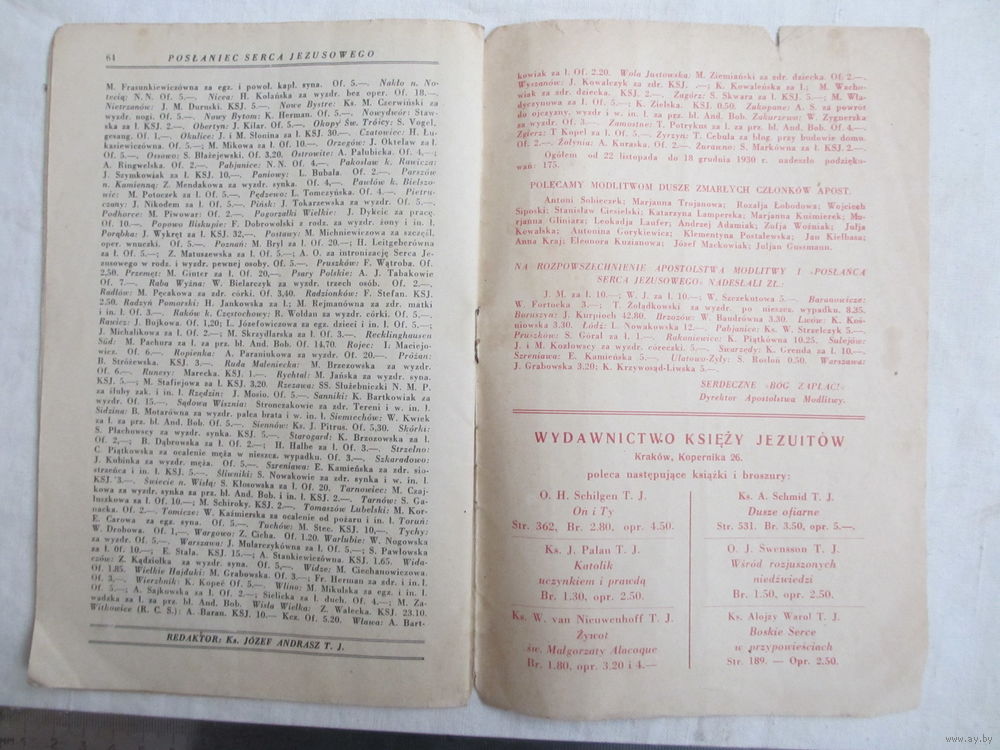 64 POSŁANIEC SERCA JEZUSOWEGO
M. Frasunkiewiczówna za egz. i powoł. kapł. syna. Of. 5.—. Nakło n. No-
tecią: N. N. Of. 5.—. Nicea: H. Kolańska za wyzdr. bez oper. Of. 18.—.
Nietrzanów: J. M. Duruski. KSJ. 5.—. Nowe Bystre: Ks. M. Czerwiński za
wyzdr. nogi. Of. 5.—. Nowy Bytom: K. Herman. Of. 5.—. Nowydwór: Staw-
ska za ł. KSJ. 2.—. Obertyn: J. Kilar. Of. 5.—. Okopy Św. Trójcy: S. Vogel,
gesang. Of. 1.—. Okulice: J. i M. Słonina za ł. KSJ. 30.—. Czatowiec: H. Łu-
kasiewiczówna. Of. 5.—; M. Mikowa za ł. Of. 10.—. Orzegów: J. Oktelaw za ł.
Of. 5.—. Ossowo: S. Błażejewski. Of. 3.20. Ostrowite: A. Palubicka. Of. 4.—;
A. Ringwelska. Of. 2.—. Pabjanice: N. N. Of. 4.—. Pakosław k. Rawicza:
J. Szymkowiak za ł. KSJ. 10.—. Paniowy: L. Bubała. Of. 2.—. Parszów
n. Kamienną: Z. Mendakowa za wyzdr. synka. Of. 4.—. Pawłów k. Bielszo-
wic: M. Potoczek za ł. Of. 5.—. Pędzewo: L. Tomczyńska. Of. 4.—. Pietru-
czany: J. Nikodem za ł. Of. 5.—. Pińsk: J. Tokarzewska za wyzdr. Of. 5.—.
Podhorce: M. Piwowar: Of. 2.—. Pogorzałki Wielkie: J. Dykeic za pracę.
Of. 10.—. Popowo Biskupie: F. Dobrowolski z rodz. za wyzdr. żony i in. ł.
Porąbka: J. Wykręt za ł. KSJ. 32.—. Postawy: M. Michniewiczowa za szczęśl.
oper. wnuczki. Of. 5.—. Poznań: M. Bryl za ł. Of. 20.—; H. Leitgeberówna
za ł. Of. 5.—; Z. Matuszewska za ł. Of. 5.—; A. O. za intronizację Serca Je-
zusowego w rodz. i wyzdr. pewnej osoby. Of. 5.—. Pruszków: F. Wątroba. Of.
2.50. Przemęt: M. Ginter za ł. Of. 20.—. Psary Polskie: A. J. Tabakowie
Of. 7.—. Raba Wyżna: W. Bielarczyk za wyzdr. trzech osób. Of. 2.—.
Radłów: M. Pęcakowa za zdr. córki. Of. 3.40. Radzionków: F. Stefan. KSJ.
2.50. Radzyń Pomorski: H. Jankowska za ł.; M. Rejmanówna za zdr. matki
i in. ł. Of. 3.—. Raków k. Częstochowy: R. Woldan za wyzdr. córki. Of. 5.—.
Rawicz: J. Bojkowa. Of. 1.20; L. Józefowiczowa za egz. dzieci i in. ł. Of. 5.—;
J. Michalikowa za ł. Of. 2.—; M. Skrzydlarska za ł. Of. 3.—. Recklinghausen
Süd: M. Pachura za ł. za prz. bł. And. Bob. Of. 14.70. Rojec: I. Maciejo-
wicz. Of. 6.—. Ropienka: A. Paraniukowa za wyzdr. Of. 20.—. Próżan:
B. Stróżewska. KSJ. 3.—. Ruda Maleniecka: M. Brzezowska za wyzdr.
Of. 6.—. Runcxy: Marecka. KSJ. 1.—. Rychtal: M. Jańska za wyzdr. syna.
KSJ. 5.—; M. Stafiejowa za ł. KSJ. 3.20. Rzeszów: SS. Służebniczki N. M. P.
za śluby zak. i in. ł. Rzędzin: J. Mosio. Of. 5.—. Sanniki: K. Bartkowiak za
wyzdr. Of. 15.—. Sądowa Wisznia: Stronczakowie za zdr. Tereni i w. in. ł.
Sidzina: B. Motarówna za wyzdr. palca brata i w. in. ł. Siemiechów: W. Kwiek
za ł. za prz. bł. And. Bob. Of. 5.—. Siennów: Ks. J. Pitrus. Of. 5.30. Skórki:
S. Płachowscy za wyzdr. synka. KSJ. 5.—. Starogard: K. Brzozowska za ł.
Of. 2.—; B. Dąbrowska za ł. Of. 2.—; H. Halbe za ł. Of. 3.—. Strzelno:
C. Piątkowska za ocalenie męża w nieszcz. wypadku. Of. 3.—. Szkaradowo:
J. Kubinka za wyzdr. męża. Of. 5.—. Szreniawa: E. Kamieńska za zdr. sio-
strzeńca i in. ł. KSJ. 5.—. Śliwniki: S. Nowakowie za zdr. synka i w. in. ł.
KSJ. 3.—. Świecie n. Wisłą: S. Kłosowska za ł. Of. 20. Tarnowiec: M. Czaj-
kowa za wyzdr. synka za prz. bł. And. Bob. i in ł. KSJ. 2.—. Tarnów: S. Ga-
łuszkowa za ł. Of. 10.—; M. Schiroky. KSJ. 2.—. Tomaszów Lubelski: M. Kor-
nacka. Of. 2.—. Tomice: W. Kaźmierska za ocalenie od pożaru i in. ł. Toruń:
E. Carowa za egz. syna. Of. 5.—. Tuchów: M. Stec. KSJ. 10.—. Tychy:
W. Drobowa. Of. 1.—. Wargowo: Z. Cicha. Of. 1.20. Warlubie: W. Nogowska
za wyzdr. Of. 5.—. Warszawa: J. Mularczykówna za ł. Of. 5.—; S. Pawłowska
za ł. Of. 10.—; E. Stala. KSJ. 15.—; A. Stankiewiczówna. KSJ. 1.65. Wida-
czów: Z. Kądziołka za wyzdr. syna. Of. 5.—. Widze: M. Ciechanowiczowa.
Of. 1.85. Wielkie Hajduki: M. Grabowska. Of. 3.—; Fr. Herman za zdr. i in. ł.
Of. 3.—. Wierzbnik: K. Kopeć Of. 5.—. Wlino: M. Mikulska za egz. i in. ł.
Of. 5.—; A. Sajkowska za ł. Of. 2.—; Sielicka za ł. duch. Of. 4.—; M. Za-
wadzka za ł. za prz. bł. And. Bob. Wisła Wielka: Z. Walecka. KSJ. 23.10.
Witkowice (R. C. S.): A. Baran. KSJ. 10.— Kcz. Of. 5.20. Wława: A. Bart-
REDAKTOR: Ks. JÓZEF ANDRASZ T. J.
kowiak za ł. Of. 2.20. Wola Justowska: M. Ziemiański za zdr. dziecka. Of. 2.—.
Wyszanów: J. Kowalczyk za zdr. KSJ. .—; K. Kowaleńska za ł.; M. Wscho-
wiak za zdr. dziecka. KSJ. 2.—. Zagórz: S. Skwara za ł. KSJ. 5.—; M. Wła-
dyczynowa za ł. Of. 5.—; K. Zielska. KSJ. 0.50. Zakopane: A. S. za powrót
do ojczyzny, wyzdr i w. in. ł. za prz. bł. And. Bob. Zakurzewo: W. Zygnerska
za wyzdr. Of. 3.—. Zamostne: T. Potrykus za ł. za prz. bł. And. Bob. Of. 4.—.
Zgierz: T Kopel za ł. Of. 5.—. Zyrzyn: T. Cebula za błog. przy budowie domu.
Of. 2.—. Żołynia: A. Kuraska. Of. 2.—. Żurawno: S. Markówna za ł. KSJ. 2.—.
Ogółem od 22 listopada do 18 grudnia 1930 r. nadeszło podzięko-
wań: 175.
POLECAMY MODLITWOM DUSZE ZMARŁYCH CZŁONKÓW APOST.
Antoni Sobieczek; Marjanna Trojanowa; Rozalja Łobodowa; Wojciech
Siposki; Stanisław Ciesielski; Katarzyna Lamperska; Marjanna Kuśmierek; Ma-
rjanna Gliniara; Leokadja Laufer; Andrzej Adamiak; Zufja Woźniak; Julja
Kowalska; Antonina Gorykiewicz; Klementyna Postalewska; Jan Kiełbasa;
Anna Kraj; Eleonora Kuzianowa; Józef Mackowiak; Juljan Gussmann.
NA ROZPOWSZECHNIENIE APOSTOLSTWA MODLITWY I »POSŁAŃCA
SERCA JEZUSOWEGO« NADESŁALI ZŁ.:
J. M. za ł. 10.—; W. J. za ł. 10.—, W. Szczekutowa 5.—. Baranowicze:
W. Fortucka 3.—; T. Żoładkowski za wyzdr. po nieszcz. wypadku. 8.25.
Boruszyn: J. Kurpioch 42.80. Brzozów: W. Baudrówna 3.30. Lwów: K. Koś-
niowska 3.30. Łódź: L. Nowakowska 12.—. Pabjanice: Ks. W. Strzelczyk 5.—.
Pruszków: S. Góral za ł. 1.—. Rukoniewice: K. Piątkówna 10.25. Sulejów:
J. i M. Kozłowscy za wyzdr. córeczki. 5.—. Swarzędz: K. Grenda za ł. 10.—.
Szreniawa: E. Kamieńska 5.—. Ulatowo-Zyły: S. Rosłoń 0.50. Warszawa:
J. Grabowska 3.20; K. Krzywosąd-Liwska 5.—.
SERDECZNE »BÓG ZAPŁAĆ!«
Dyrektor Apostolstwa Modlitwy.
WYDAWNICTWO KSIĘŻY JEZUITÓW
Kraków, Kopernika 26.
poleca następujące książki i broszury:
O. H. Schilgen T. J.
On i Ty
Str. 362, Br. 2.80, opr. 4.50.
Ks. J. Pałan T. J.
Katolik
uczynkiem i prawdą
Br. 1.30, opr. 2.50.
Ks. W. van Nieuwenhoff T. J.
Żywot
św. Małgorzaty Alacoque
Br. 1.80, opr. 3.20 i 4.—
Ks. A. Schmid T. J.
Dusze ofiarne
Str. 531. Br. 3.50, opr. 5.—.
O. J. Swensson T. J.
Wśród rozjuszonych
niedźwiedzi
Br. 1.50, opr. 2.50.
Ks. Alojzy Warol T. J.
Boskie Serce
w przypowieściach
Str. 189. — Opr. 2.50.
www.ay.by